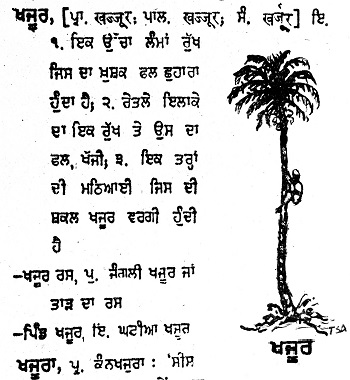 ਖਜੂਰ, [ਪ੍ਰਾ. ਖਜਜੂਰ; ਪਾਲ. ਖਜਜੂਰ; ਸੰ. ਖਰ੍ਜੂਰ] ਇ.
੧. ਇਕ ਉੱਚਾ ਲੰਮਾਂ ਰੁੱਖ
ਜਿਸ ਦਾ ਖ਼ੁਸ਼ਕ ਫਲ ਛੁਹਾਰਾ
ਹੁੰਦਾ ਹੈ; ੨. ਰੇਤਲੇ ਇਲਾਕੇ
ਦਾ ਇਕ ਰੁੱਖ ਤੇ ਉਸ ਦਾ
ਫਲ, ਖੱਜੀ; ੩. ਇਕ ਤਰ੍ਹਾਂ
ਦੀ ਮਠਿਆਈ ਜਿਸ ਦੀ
ਸ਼ਕਲ ਖਜੂਰ ਵਰਗੀ ਹੁੰਦੀ
ਹੈ
–ਖਜੂਰ ਰਸ, ਪੁ. ਜੰਗਲੀ ਖਜੂਰ ਜਾਂ
ਤਾੜ ਦਾ ਰਸ
–ਪਿੰਡ ਖਜੂਰ, ਇ. ਘਟੀਆ ਖਜੂਰ
ਖਜੂਰਾ, ਪੁ. ਕੰਨਖਜੂਰਾ : 'ਸੀਸ
TSA
ਖਜੂਰ